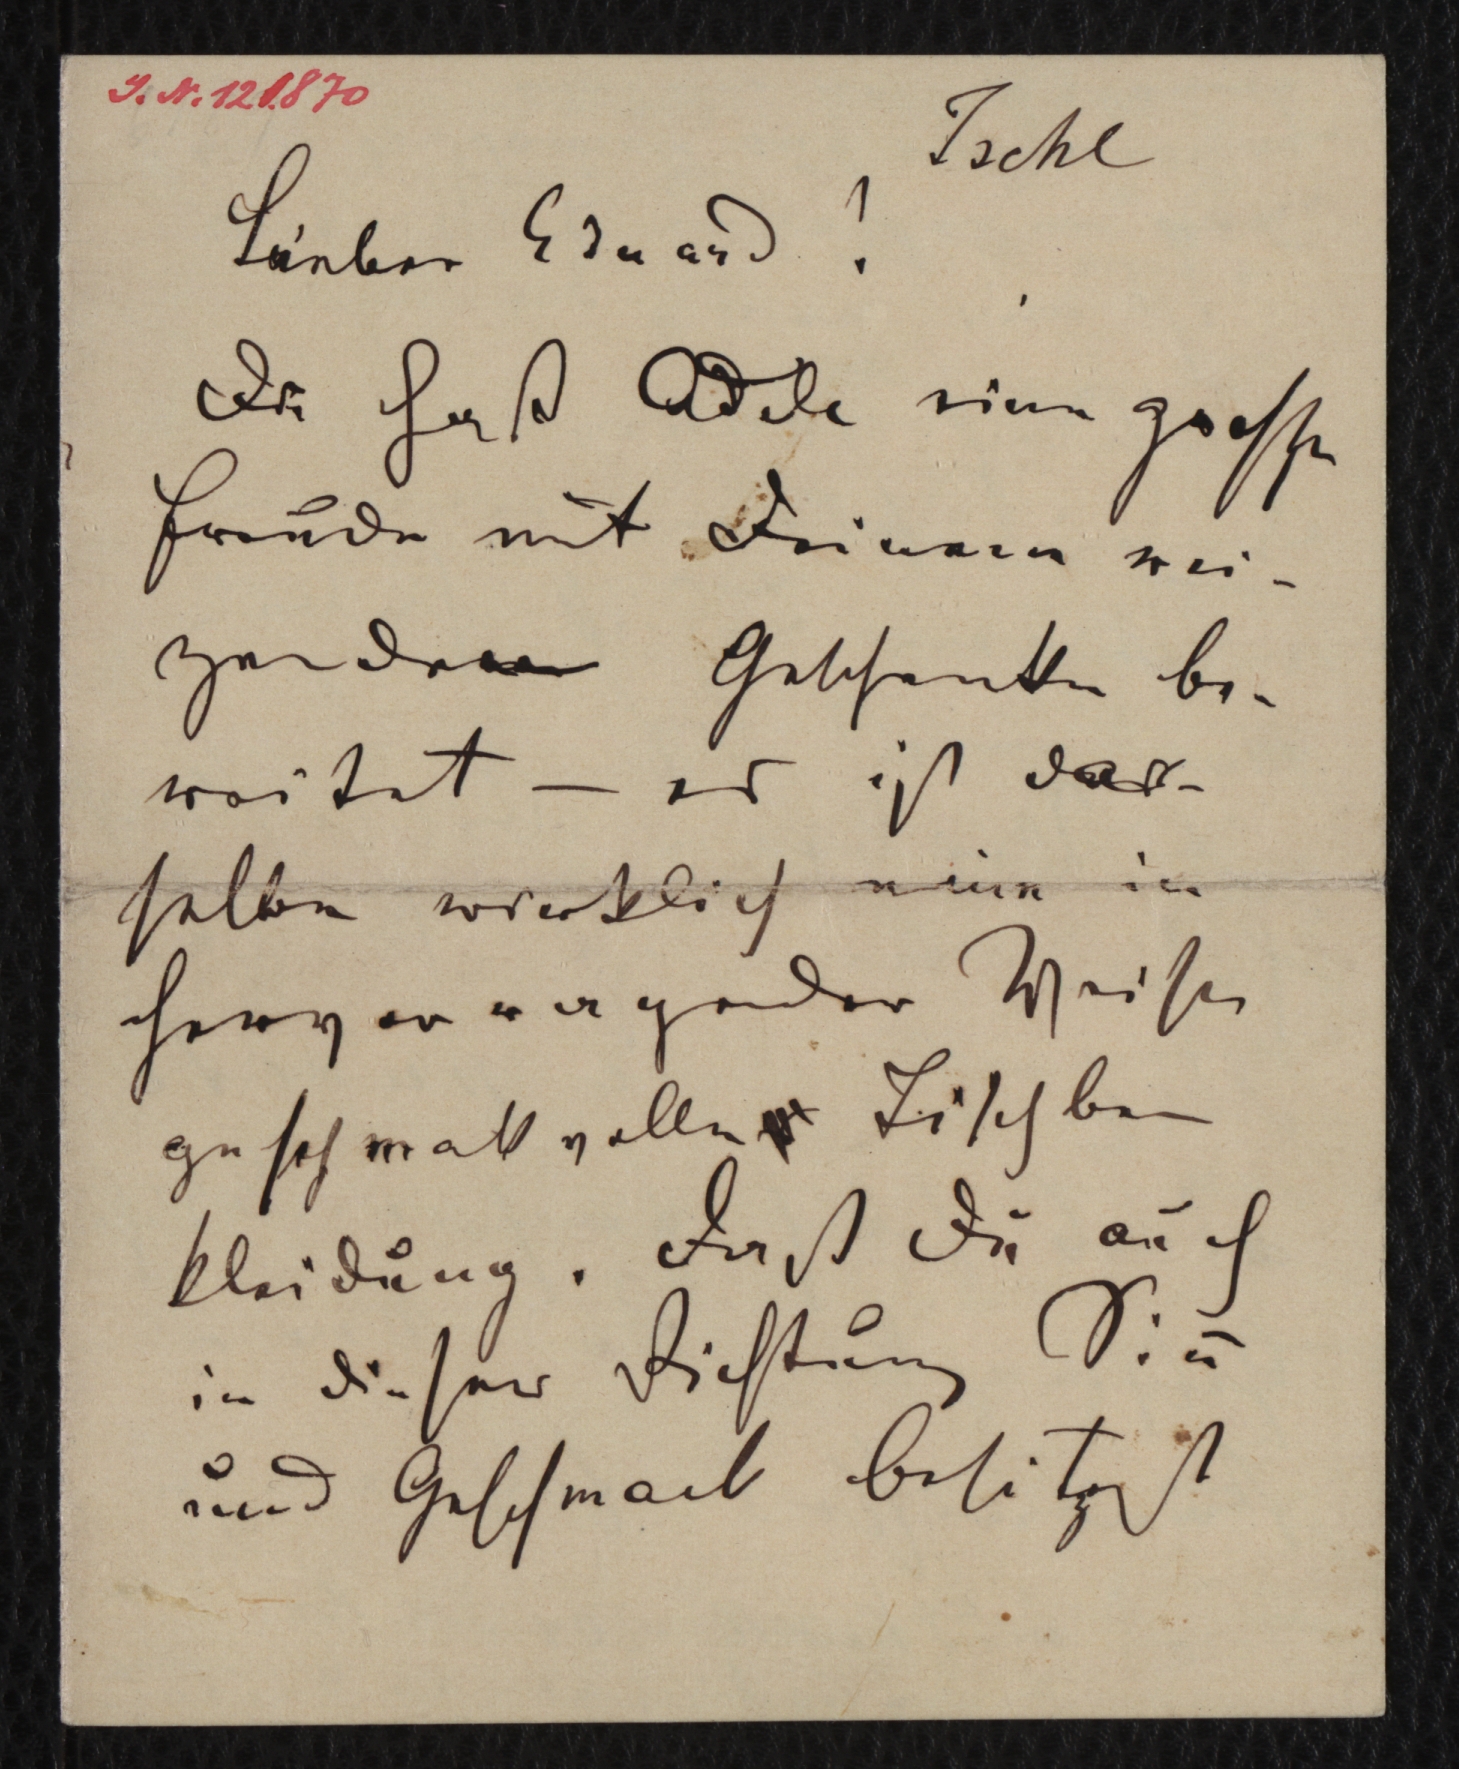 J. N. 121.870
Ischl
Lieber Eduard!
Du hast Adele eine grosse
Freude mit Deinem rei-
zenden Geschenke be-
reitet – es ist das-
selbe wirklich eine in
hervorragender Weise
geschmakvolle Tischbe
kleidung. Dass Du auch
in dieser Richtung Sinn
und Geschmack besitzest